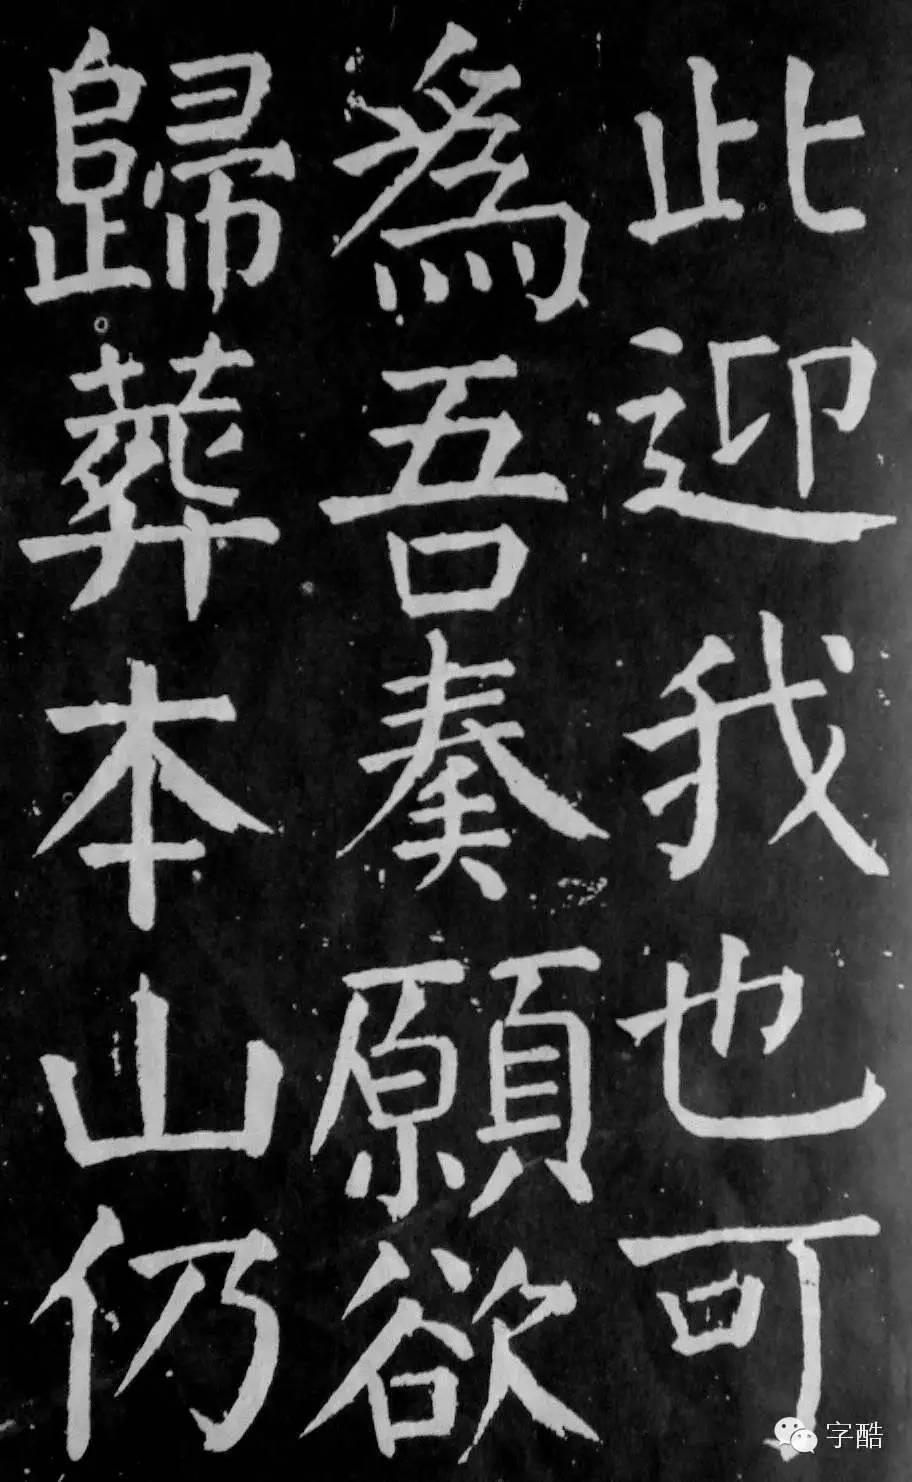 此迎我也可
為吾奏願欲
歸葬本山仍
字酷